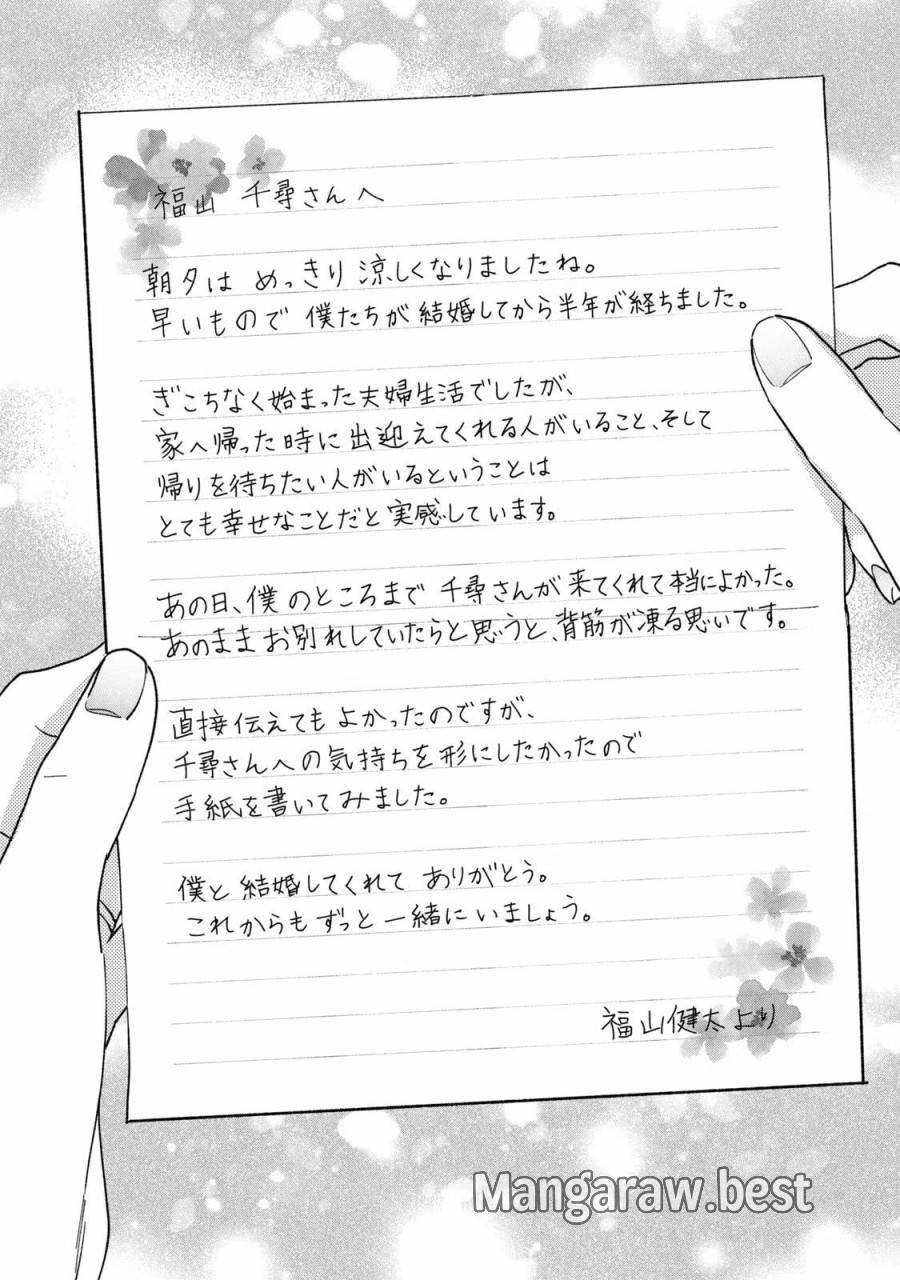 福山 千尋さんへ
朝夕は めっきり 涼しくなりましたね。
早いもので 僕たちが 結婚してから半年が経ちました。
ぎこちなく始まった夫婦生活でしたが、
家へ帰った時に出迎えてくれる人がいること、そして
帰りを待ちたい人がいるということは
とても幸せなことだと実感しています。
あの日、僕のところまで 千尋さんが 来てくれて本当によかった。
あのままお別れしていたらと思うと、背筋が凍る思いです。
直接伝えてもよかったのですが、
千尋さんへの気持ちを形にしたかったので
手紙を書いてみました。
僕と 結婚してくれて ありがとう。
これからもずっと一緒にいましょう。
福山健太より
Mangaraw.best